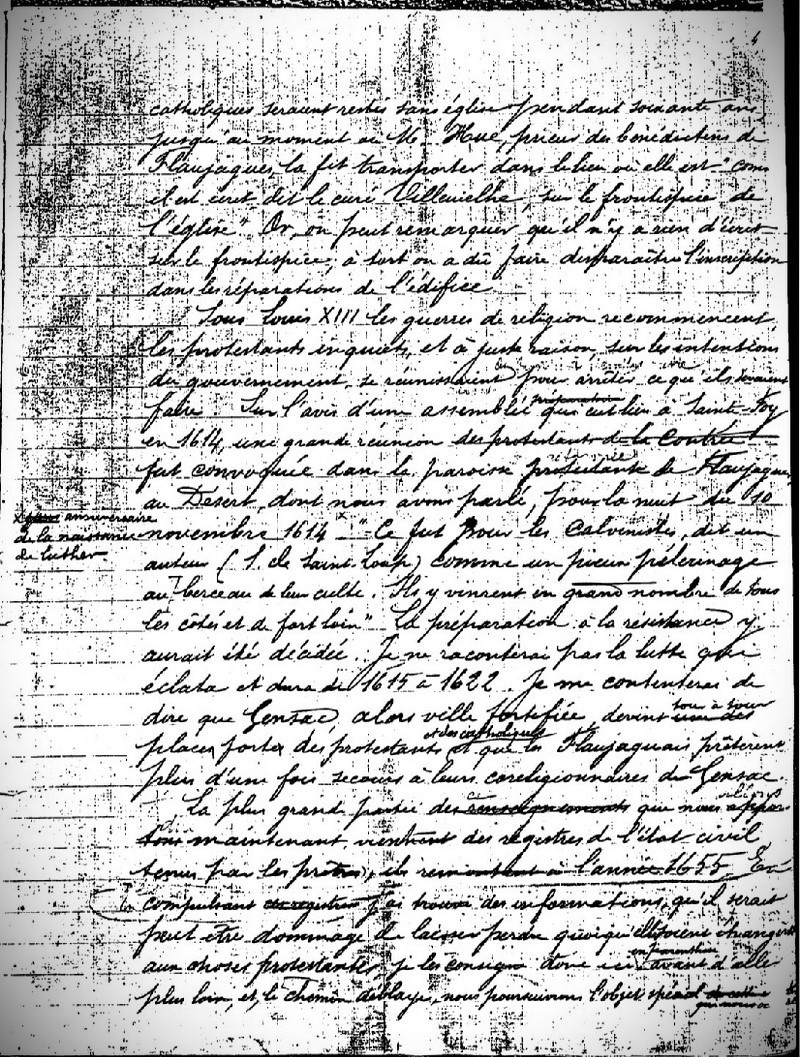 4
catholiques seraient restés sans église pendant soixante ans,
jusqu'au moment où M. Hue, prieur des bénédictins de
Flaujagues, la fit transporter dans le lieu où elle est "com
il est écrit dit le curé Villevielhe, sur le frontispice de
l'église". Or, on peut remarquer qu'il n'y a rien d'écrit
sur le frontispice, à tort on a dû faire disparaître l'inscription
dans les réparations de l'édifice.
Sous Louis XIII les guerres de religion recommencent,
les protestants inquiets, et à juste raison, sur les intentions
du gouvernement, se réunissaient pour arrêter ce qu'ils
faire. Sur l'avis d'une assemblée préparatoire qui eut lieu à Saint-Foy
en 1614, une grande réunion des protestants de la contrée
fut convoquée dans la paroisse protestante réformée de Flaujagues,
au Désert, dont nous avons parlé, pour la nuit du 10
novembre 1614 x "Ce fut pour les Calvinistes, dit un
x anniversaire
de la naissance
de Luther
auteur (S. de Saint-Loup) comme un pieux pélerinage
au berceau de leur culte. Ils y vinrent en grand nombre de tous
les côtés et de fort loin". La préparation à la résistance y
aurait été décidée. Je ne raconterai pas la lutte qui
éclata et dura de 1615 à 1622. Je me contenterai de
dire que Gensac, alors ville fortifiée, devint tour à tour une des
places fortes des protestants et des catholiques et que les Flaujaguais prêtèrent
plus d'une fois secours à leurs coreligionnaires de Gensac.
La plus grande partie des renseignements que nous
maintenant viennent des registres de l'état civil
tenus par les prêtres, ils remontent à l'année 1655 En
En compulsant ces registres j'ai trouvé des informations, qu'il serait
peut être dommage de laisser perdre quoiqu'elles soient étrangères
aux choses protestantes, je les consigne donc ici avant d'aller
plus loin, et, le chemin déblayé, nous poursuivrons l'objet spécial